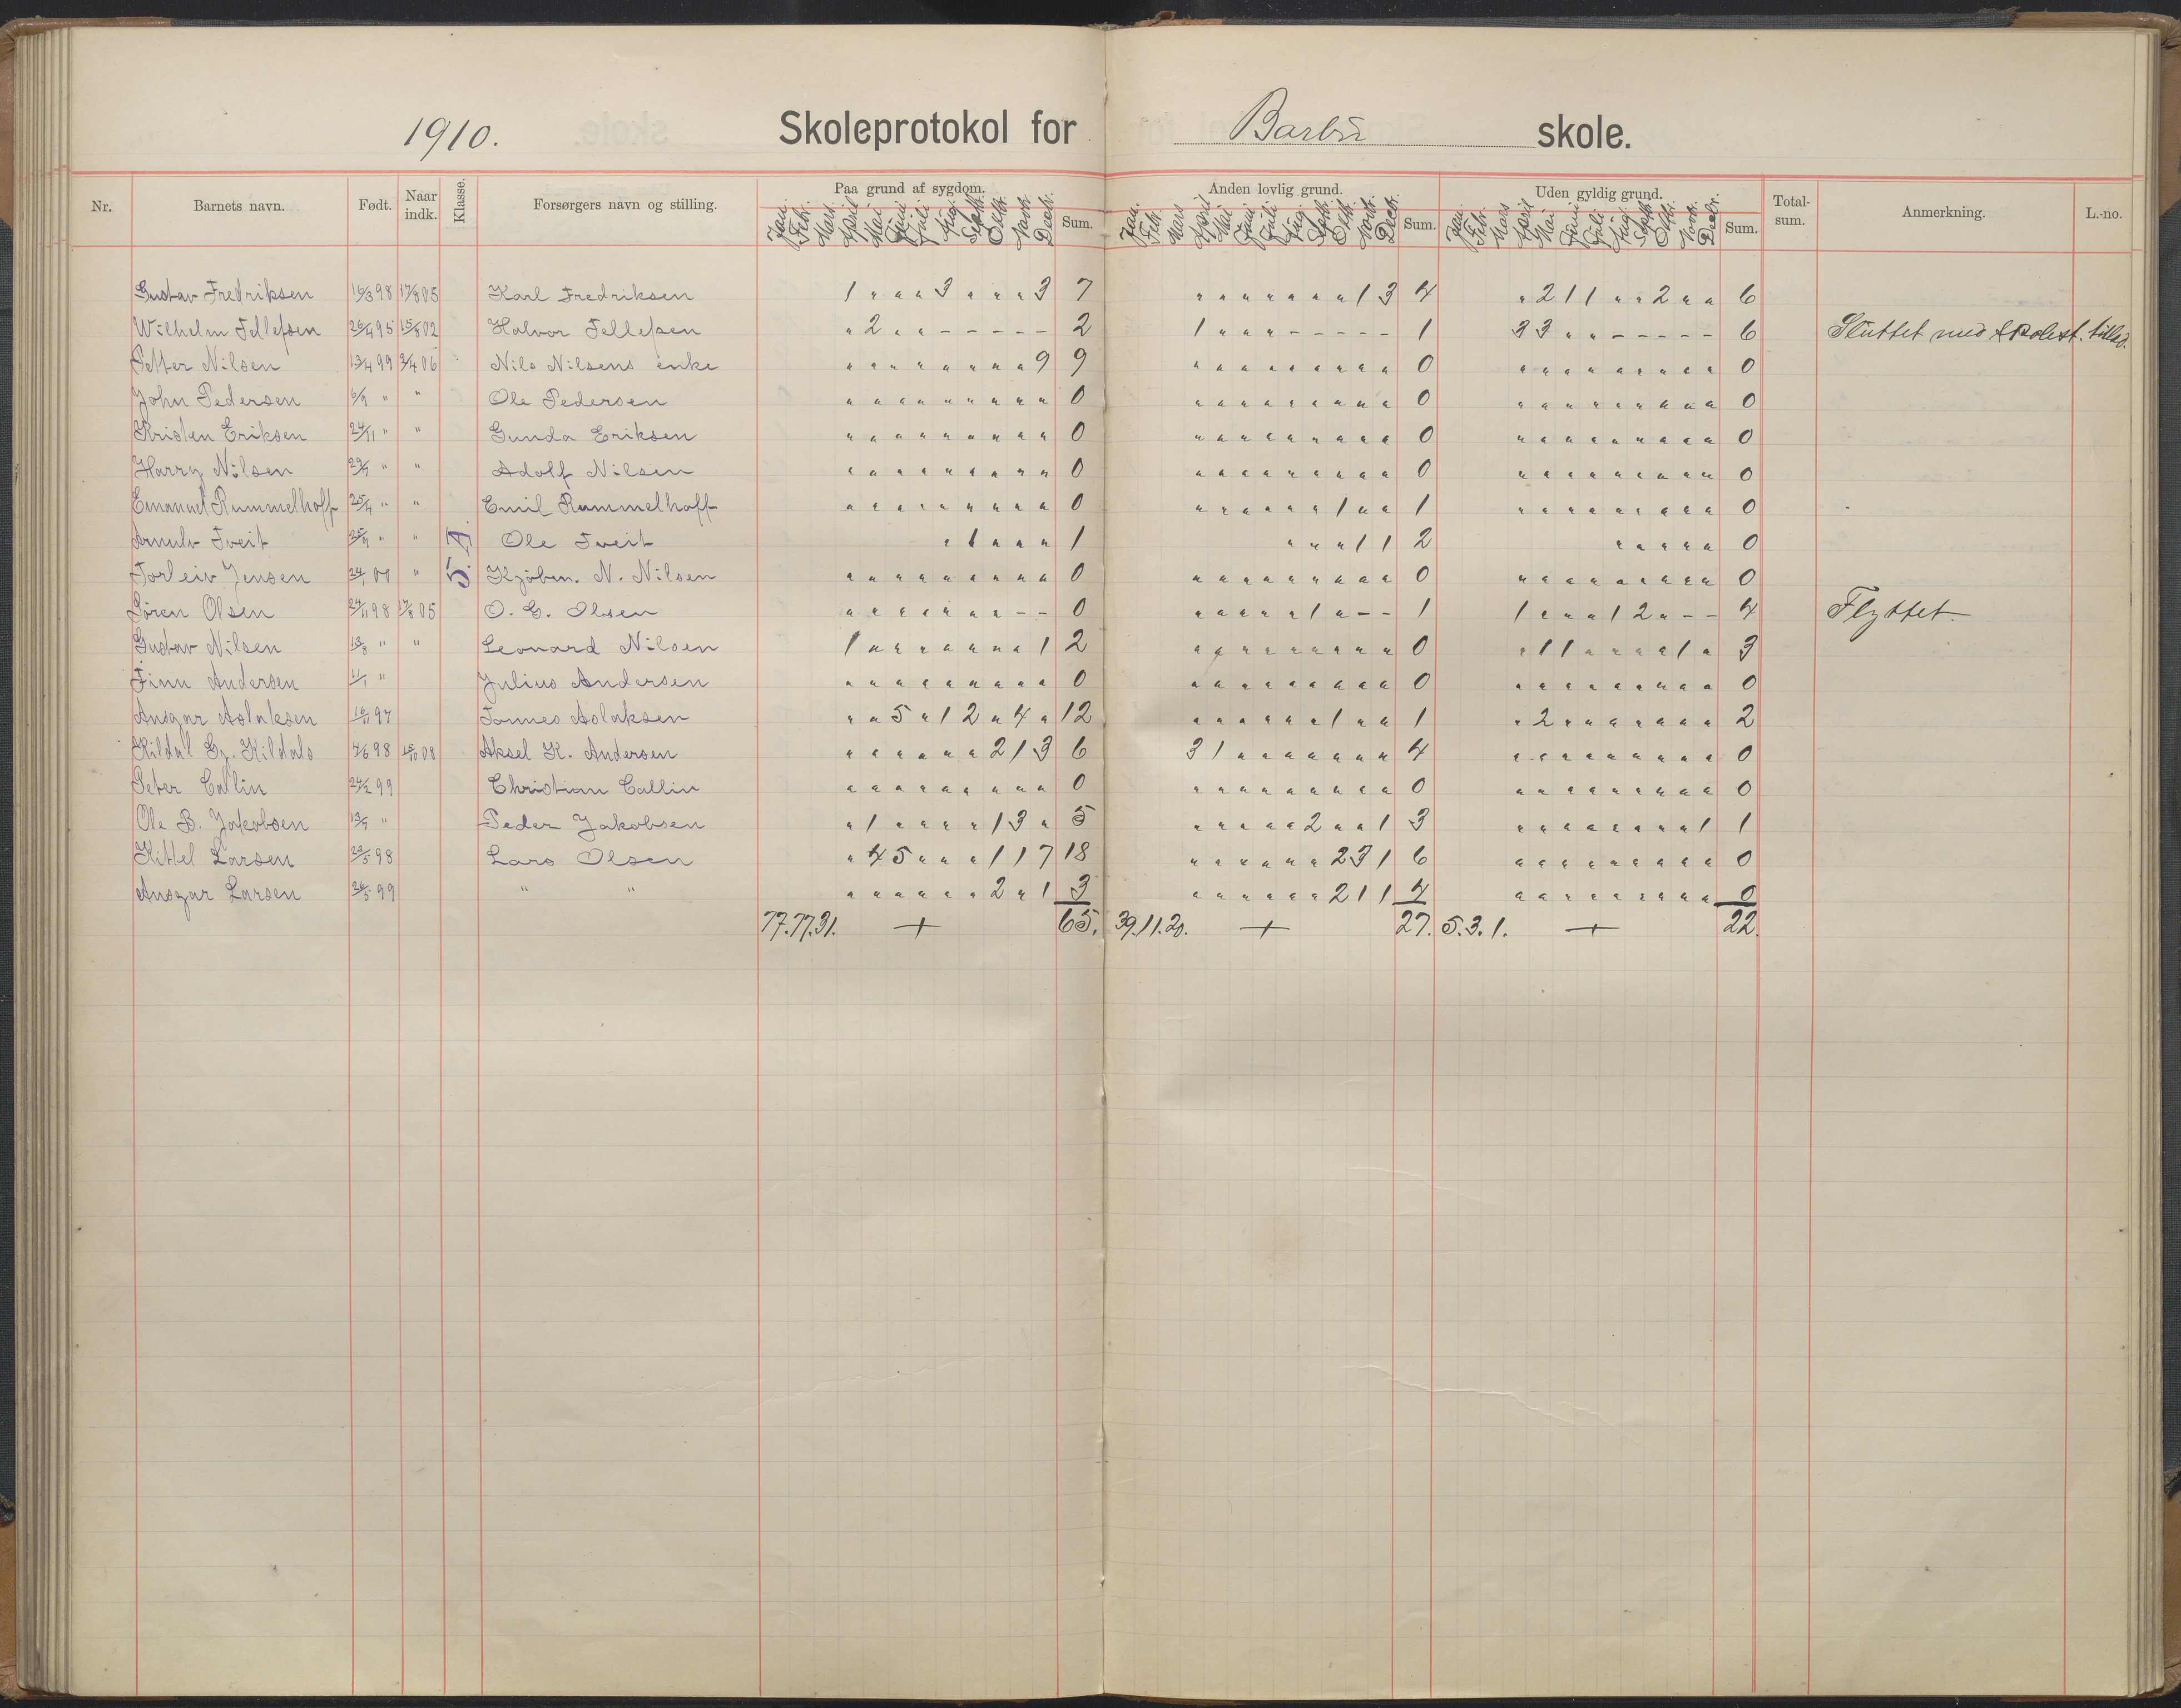 1910. Skoleprotokol for Barbu skole.
Nr. Barnets navn. Født. Naar indk. Klasse. Forsørgers navn og stilling. Paa grund af sygdom. Sum. Anden lovlig grund. Sum. Uden gyldig grund. Sum. Total-sum. Anmerkning. L.-no.
Jan. Feb. Mars April Mai Juni Juli Aug. Sept. Oktb. Novb. Decb. Jan. Feb. Mars April Mai Juni Juli Aug. Sept. Oktb. Novb. Decb. Jan. Feb. Mars April Mai Juni Juli Aug. Sept. Oktb. Novb. Decbr.
Gustav Fredriksen 16/3 98 17/8 05 Karl Fredriksen 1 " " " 3 " " " 3 7 " " " " " " " 1 3 4 " 2 1 1 " " 2 " " 6
Wilhelm Tellefsen 26/4 95 15/8 02 Halvor Tellefsen " 2 " " - - - - - 2 1 " " " - - - - - 1 3 3 " " - - - - - 6 Sluttet med skolest. tillad.
Petter Nilsen 13/4 99 3/4 06 Nils Nilsens enke " " " " " " " " 9 9 " " " " " " " " " 0 " " " " " " " " " 0
John Pedersen 6/9 " " Ole Pedersen " " " " " " " " " 0 " " " " " " " " " 0 " " " " " " " " " 0
Kristen Eriksen 24/11 " " Gunda Eriksen " " " " " " " " " 0 " " " " " " " " " 0 " " " " " " " " " 0
Harry Nilsen 29/7 " " Adolf Nilsen " " " " " " " " " 0 " " " " " " " " " 0 " " " " " " " " " 0
Emanuel Rummelhoff 25/4 " " Emil Rummelhoff " " " " " " " " " 0 " " " " " " 1 " " 1 " " " " " " " " " 0
Arnulv Tveit 25/9 " " Ole Tveit " 1 " " " 1 " " " 1 1 2 " " " " " 0
Torleiv Jensen 24/1 00 " 5. Kjøbm. N. Nilsen " " " " " " " " " 0 " " " " " " " " " 0 " " " " " " " " " 0
Søren Olsen 24/11 98 17/8 05 O. G. Olsen " " " " " " " - - 0 " " " " " 1 " - - 1 1 " " " 1 2 " - - 4 Flyttet
Gustav Nilsen 13/8 " " Leonard Nilsen 1 " " " " " " " 1 2 " " " " " " " " " 0 " 1 1 " " " " 1 " 3
Finn Andersen 11/1 " Julius Andersen " " " " " " " " " 0 " " " " " " " " " 0 " " " " " " " " " 0
Ansgar Aslaksen 16/11 97 Tønnes Aslaksen " " 5 " 1 2 " 4 " 12 " " " " " " 1 " " 1 " 2 " " " " " " " 2
Kildal Gr. Kildals 4/6 98 15/10 08 Aksel K. Andersen " " " " " " 2 1 3 6 3 1 " " " " " " " 4 " " " " " " " " " 0
Peter Callin 24/2 99 Christian Callin " " " " " " " " " 0 " " " " " " " " " 0 " " " " " " " " " 0
Ole B. Jakobsen 13/7 " Peder Jakobsen " 1 " " " " 1 3 " 5 " " " " " 2 " " 1 3 " " " " " " " " 1 1
Kittel Larsen 29/5 98 Lars Olsen " 4 5 " " " 1 1 7 18 " " " " " " 2 3 1 6 " " " " " " " " " 0
Ansgar Larsen 26/5 99 " " " " " " " " 2 " 1 3 " " " " " " 2 1 1 4 " " " " " " " " " 0
77. 77. 31. + 65. 39. 11. 20. + 27. 5. 3. 1. + 22.